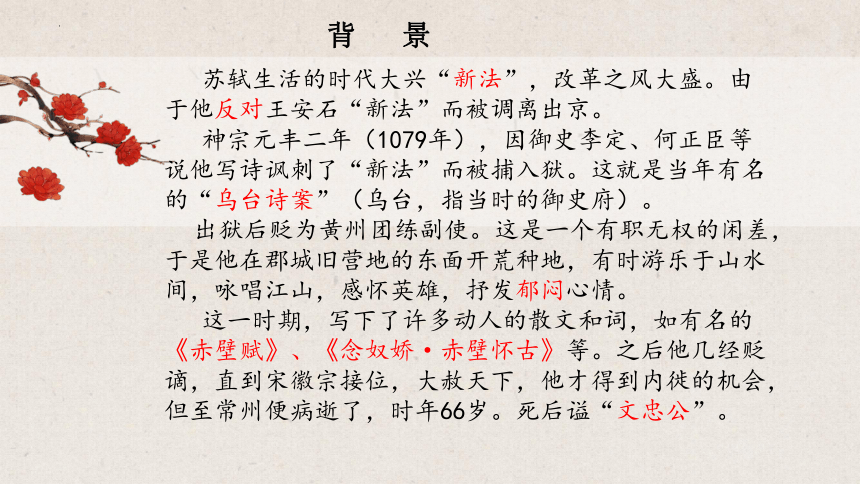 背 景
苏轼生活的时代大兴“新法”，改革之风大盛。由
于他反对王安石“新法”而被调离出京。
神宗元丰二年（1079年），因御史李定、何正臣等
说他写诗讽刺了“新法”而被捕入狱。这就是当年有名
的“乌台诗案”（乌台，指当时的御史府）。
出狱后贬为黄州团练副使。这是一个有职无权的闲差，
于是他在郡城旧营地的东面开荒种地，有时游乐于山水
间，咏唱江山，感怀英雄，抒发郁闷心情。
这一时期，写下了许多动人的散文和词，如有名的
《赤壁赋》、《念奴娇·赤壁怀古》等。之后他几经贬
谪，直到宋徽宗接位，大赦天下，他才得到内徙的机会，
但至常州便病逝了，时年66岁。死后谥“文忠公”。